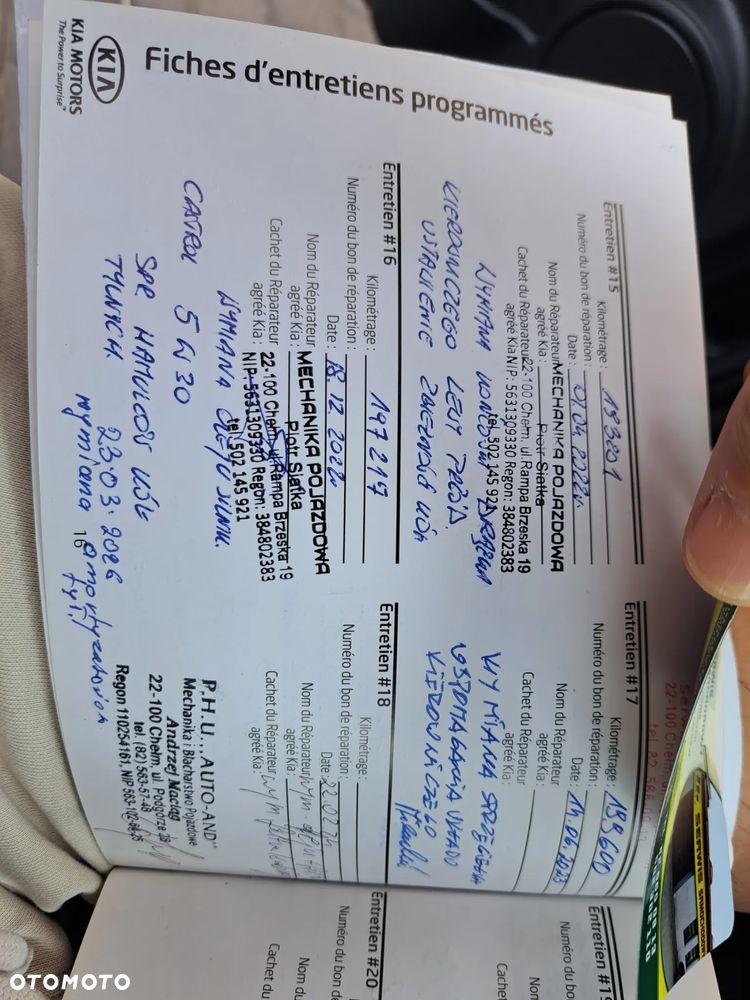 KIA
KIA MOTORS
The Power to Surprise™
Fiches d'entretiens programmés
Entretien #15
Kilométrage :
Numéro du bon de réparation :
Date : 01.04 2022r.
Nom du Réparateur
agréé Kia :
MECHANIKA POJAZDOWA
Piotr Siatka
Cachet du Réparateur
agréé Kia
22-100 Chełm, ul. Rampa Brzeska 19
NIP: 5631309330 Regon: 384802383
tel. 502 145 921
WYMIANA
KIEROWNICZEGO LEWY PRZÓD.
USTAWIENIE ZBIEŻNOŚCI KÓŁ
Entretien #16
Kilométrage : 197 217
Numéro du bon de réparation :
Date : 18.12.2022
Nom du Réparateur
agréé Kia :
MECHANIKA POJAZDOWA
Piotr Siatka
Cachet du Réparateur
agréé Kia :
22-100 Chełm, ul. Rampa Brzeska 19
NIP: 5631309330 Regon: 384802383
tel. 502 145 921
WYMIANA OLEJU SILNIK.
CASTROL 5W30
SPR HAMULCÓW KÓŁ
TYLNYCH.
23.03.2026
wymiana amortyzatorów
tył,
16
Entretien #17
Kilométrage : 198600
Numéro du bon de réparation :
Date : 14.06.2023
Nom du Réparateur
agréé Kia :
Cachet du Réparateur
agréé Kia :
WYMIANA SPRZĘGŁA
WSPOMAGANIA UKŁADU
KIEROWNICZEGO
Entretien #18
Kilométrage :
Numéro du bon de réparation :
Date :
Nom du Réparateur
agréé Kia :
Cachet du Réparateur
agréé Kia :
P.H.U. „AUTO-AND"
Mechanika i Blacharstwo Pojazdowe
Andrzej Maciąg
22-100 Chełm, ul. Podgórze 28
tel. (82) 563-57-48
Regon 110254161, NIP 563-102-86-25
Entretien #19
Numéro
Nom
Cachet
Entretien #20
Numéro du bon de
Nom du
Cachet du
22-100 Chełm,
SERWIS SAMOCHODOWY
OTOMOTO